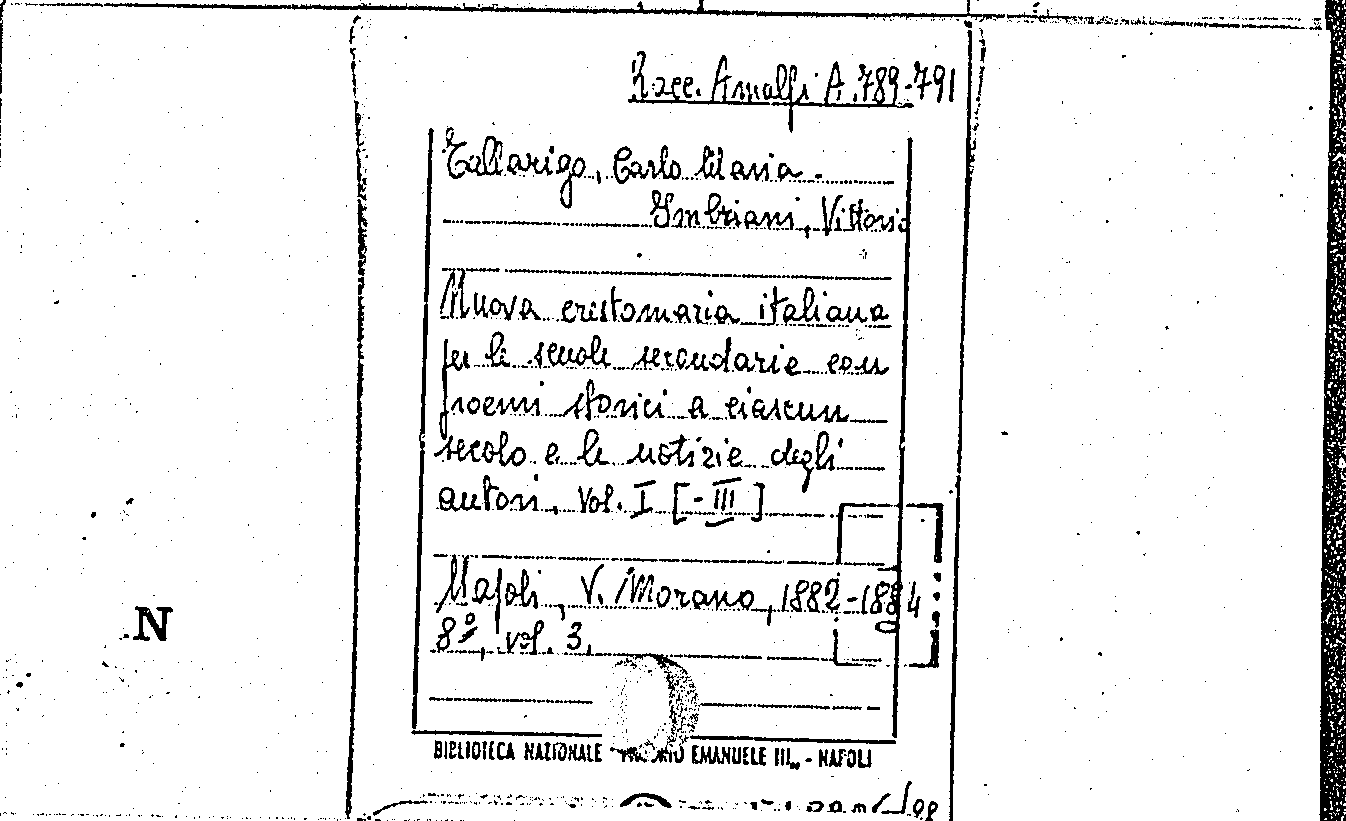 Racc. Amalfi A.789-791
Tallarigo, Carlo Maria.
Imbriani, Vittorio
Nuova crestomazia italiana
per le scuole secondarie con
proemi storici a ciascun
secolo e le notizie degli
autori, Vol. I [-III]
Napoli, V. Morano, 1882-1884
8º, vol. 3.
N
BIBLIOTECA NAZIONALE EMANUELE III„ - NAPOLI